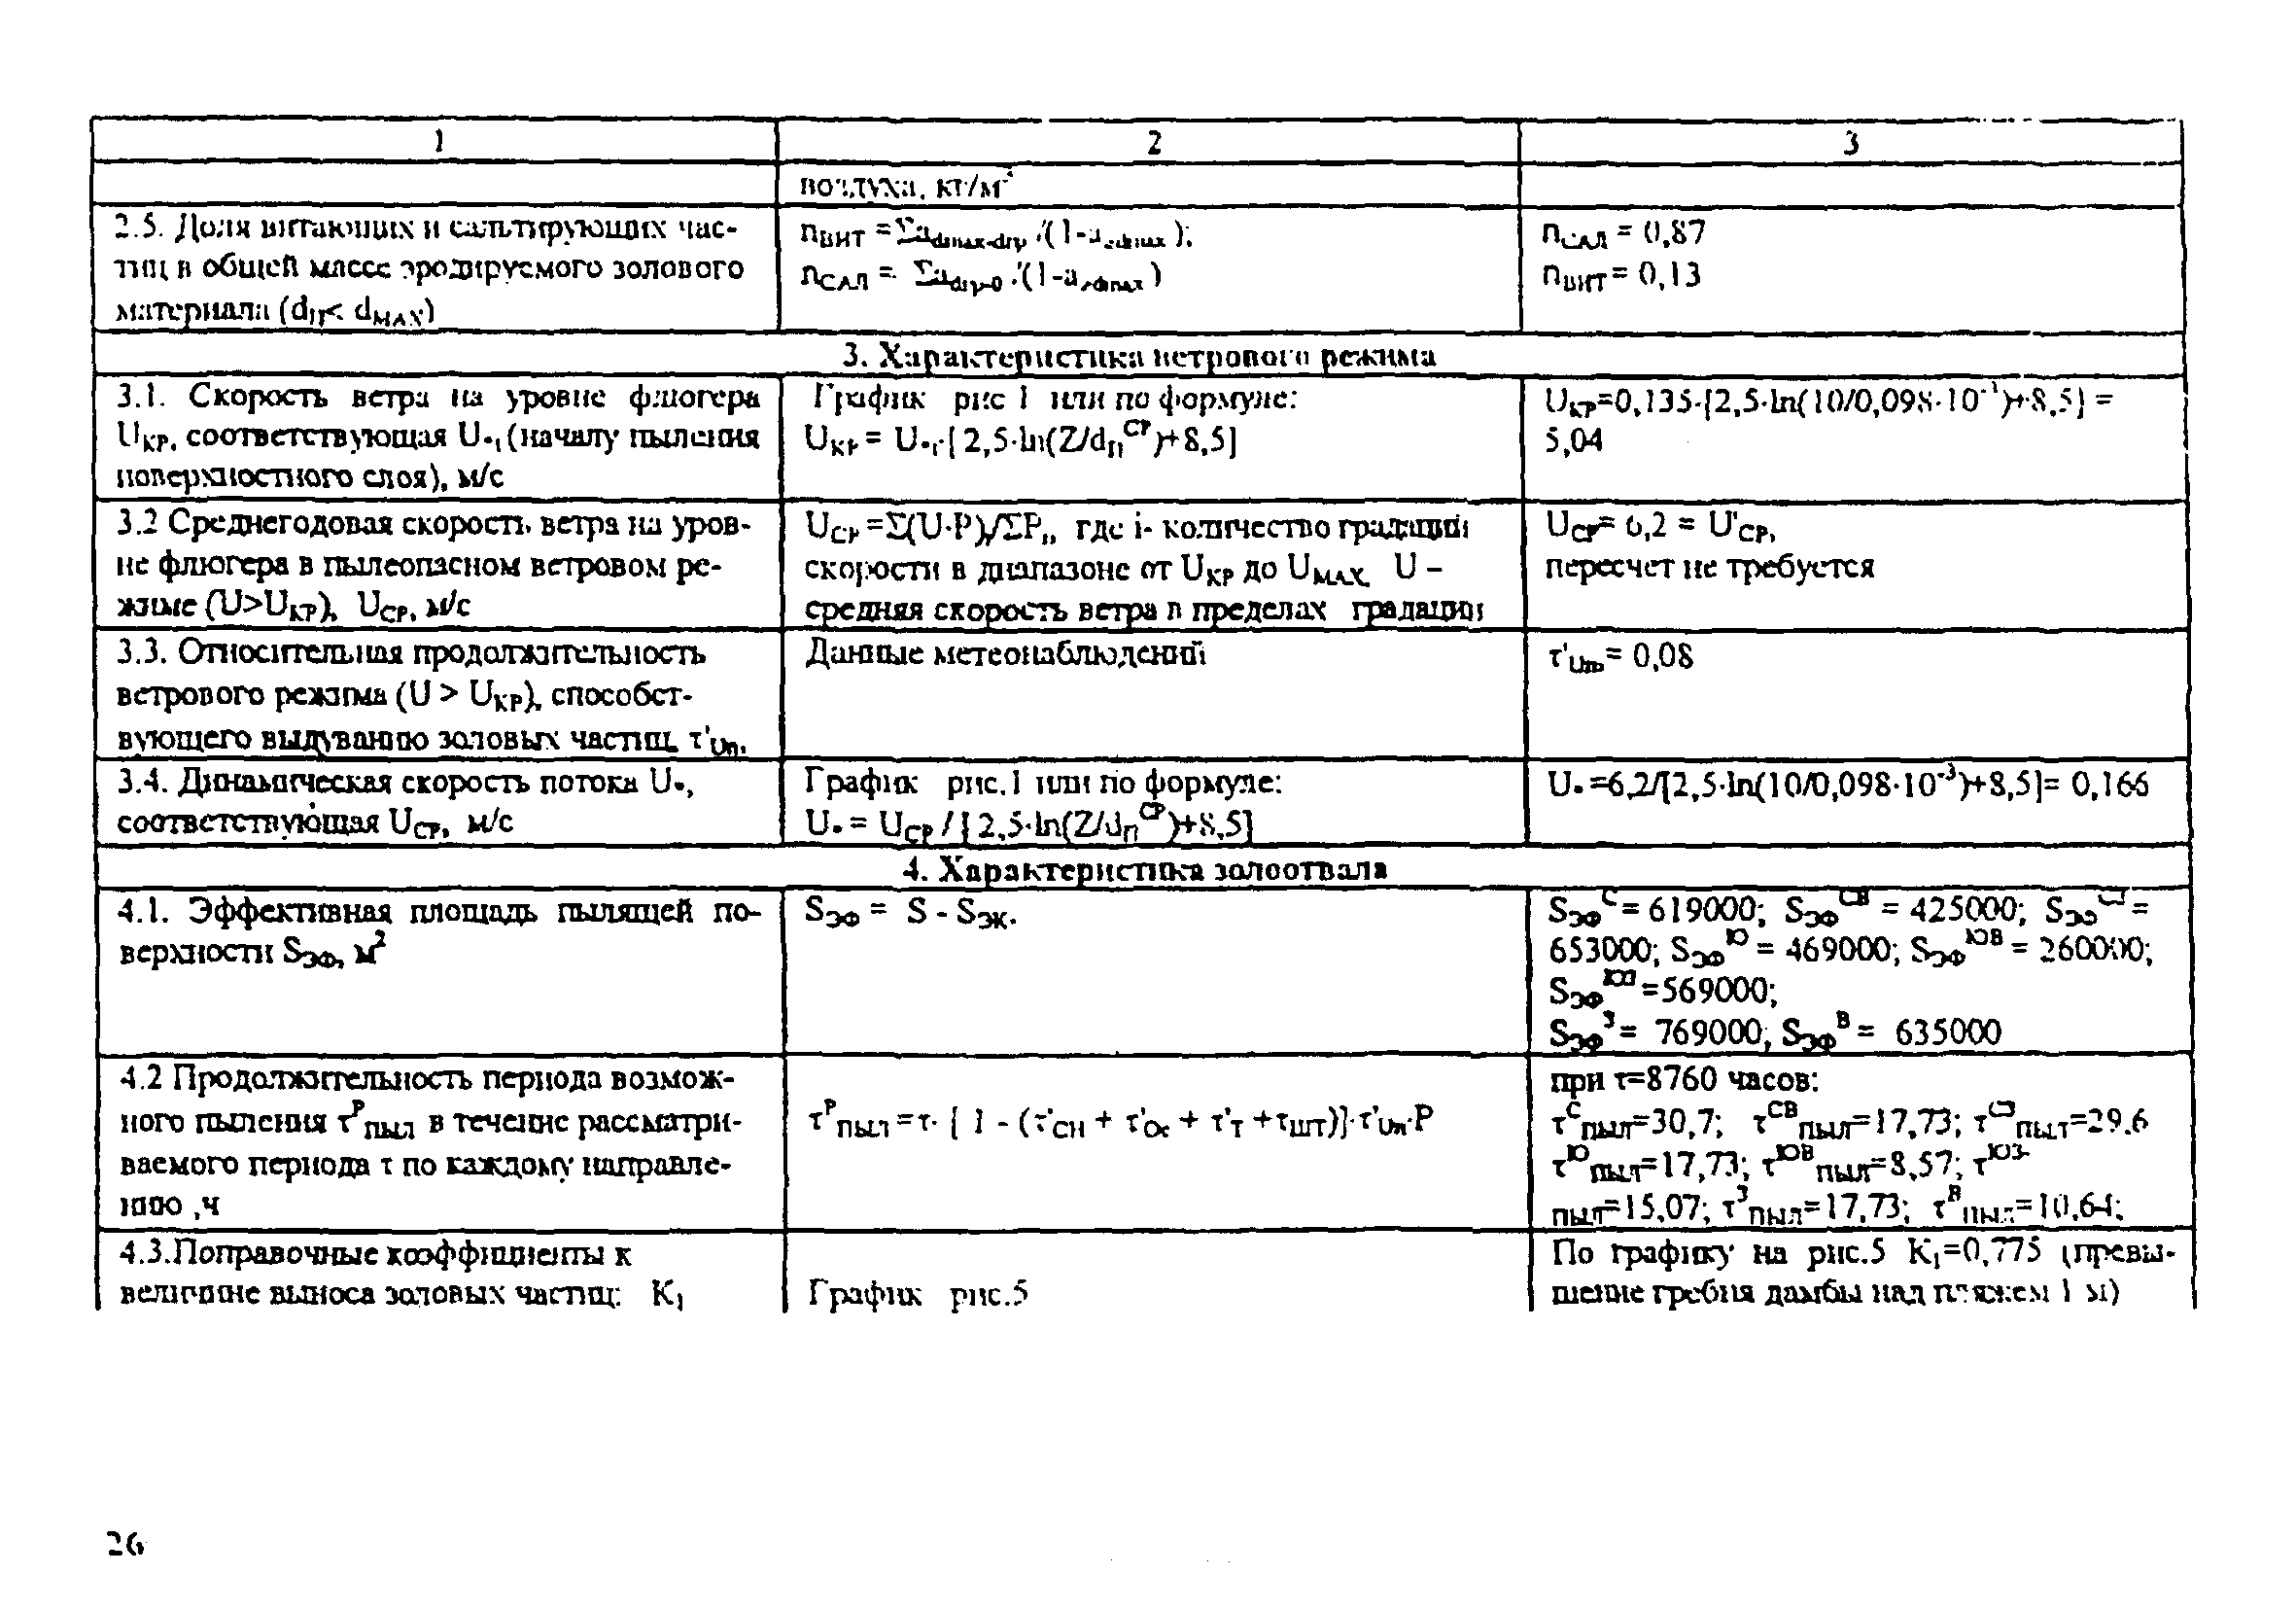 1 2 3
воздуха, кг/м³
2.5. Доля витающих и сальтирующих час-
тиц в общей массе эродируемого золового
материала (dП< dMAX)
nВИТ =Σadmax-dгр /(1-a>dmax );
nСАЛ = Σadгр-0 /(1-a>dmax )
nСАЛ = 0,87
nВИТ = 0,13
3. Характеристика ветрового режима
3.1. Скорость ветра на уровне флюгера
UКР, соответствующая U*t (началу пыления
поверхностного слоя), м/с
График рис 1 или по формуле:
UКР = U*t·[2,5·ln(Z/dПСР)+8,5]
UКР=0,135·[2,5·ln(10/0,098·10⁻³)+8,5] =
5,04
3.2 Среднегодовая скорость ветра на уров-
не флюгера в пылеопасном ветровом ре-
жиме (U>UКР), UСР, м/с
UСР =Σ(U·P)i/ΣPi, где i- количество градаций
скорости в диапазоне от UКР до UMAX, U –
средняя скорость ветра в пределах градации
UСР= 6,2 = U'СР,
пересчет не требуется
3.3. Относительная продолжительность
ветрового режима (U > UКР), способст-
вующего выдуванию золовых частиц, τ'Uп,
Данные метеонаблюдений
τ'Uп= 0,08
3.4. Динамическая скорость потока U*,
соответствующая UСР, м/с
График рис.1 или по формуле:
U* = UСР / [2,5·ln(Z/dПСР)+8,5]
U* =6,2/[2,5·ln(10/0,098·10⁻³)+8,5]= 0,166
4. Характеристика золоотвала
4.1. Эффективная площадь пылящей по-
верхности SЭФ, м²
SЭФ = S - SЭК.
SЭФС = 619000; SЭФСВ = 425000; SЭФСЗ =
653000; SЭФЮ = 469000; SЭФЮВ = 260000;
SЭФЮЗ =569000;
SЭФЗ = 769000, SЭФВ = 635000
4.2 Продолжительность периода возмож-
ного пыления τРПЫЛ в течение рассматри-
ваемого периода τ по каждому направле-
нию ,ч
τРПЫЛ =τ· [ 1 - (τ'СН + τ'Ос + τ'Т +τШТ)]·τ'Uп·P
при τ=8760 часов:
τСПЫЛ=30,7; τСВПЫЛ=17,73; τСЗПЫЛ=29,6
τЮПЫЛ=17,73; τЮВПЫЛ=8,57; τЮЗ-
ПЫЛ=15,07; τЗПЫЛ=17,73; τВПЫЛ=10,64;
4.3.Поправочные коэффициенты к
величине выноса золовых частиц: K1
График рис.5
По графику на рис.5 K1=0,775 (превы-
шение гребня дамбы над пляжем 1 м)
26